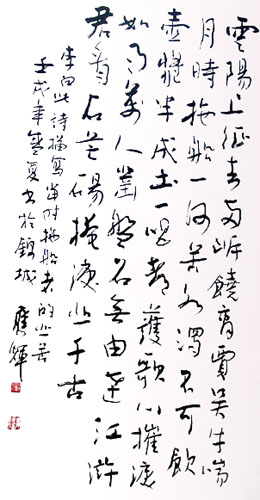 雲陽上征去兩岸饒商賈吴牛喘
月時拖船一何苦水濁不可飲
壺漿半成土一唱都護歌心摧淚
如雨萬人鑿盤石無由達江滸
君看石芒碭掩淚悲千古
李白此詩描寫當时拖船者的苦
壬戌年盛夏书於錦城 應輝